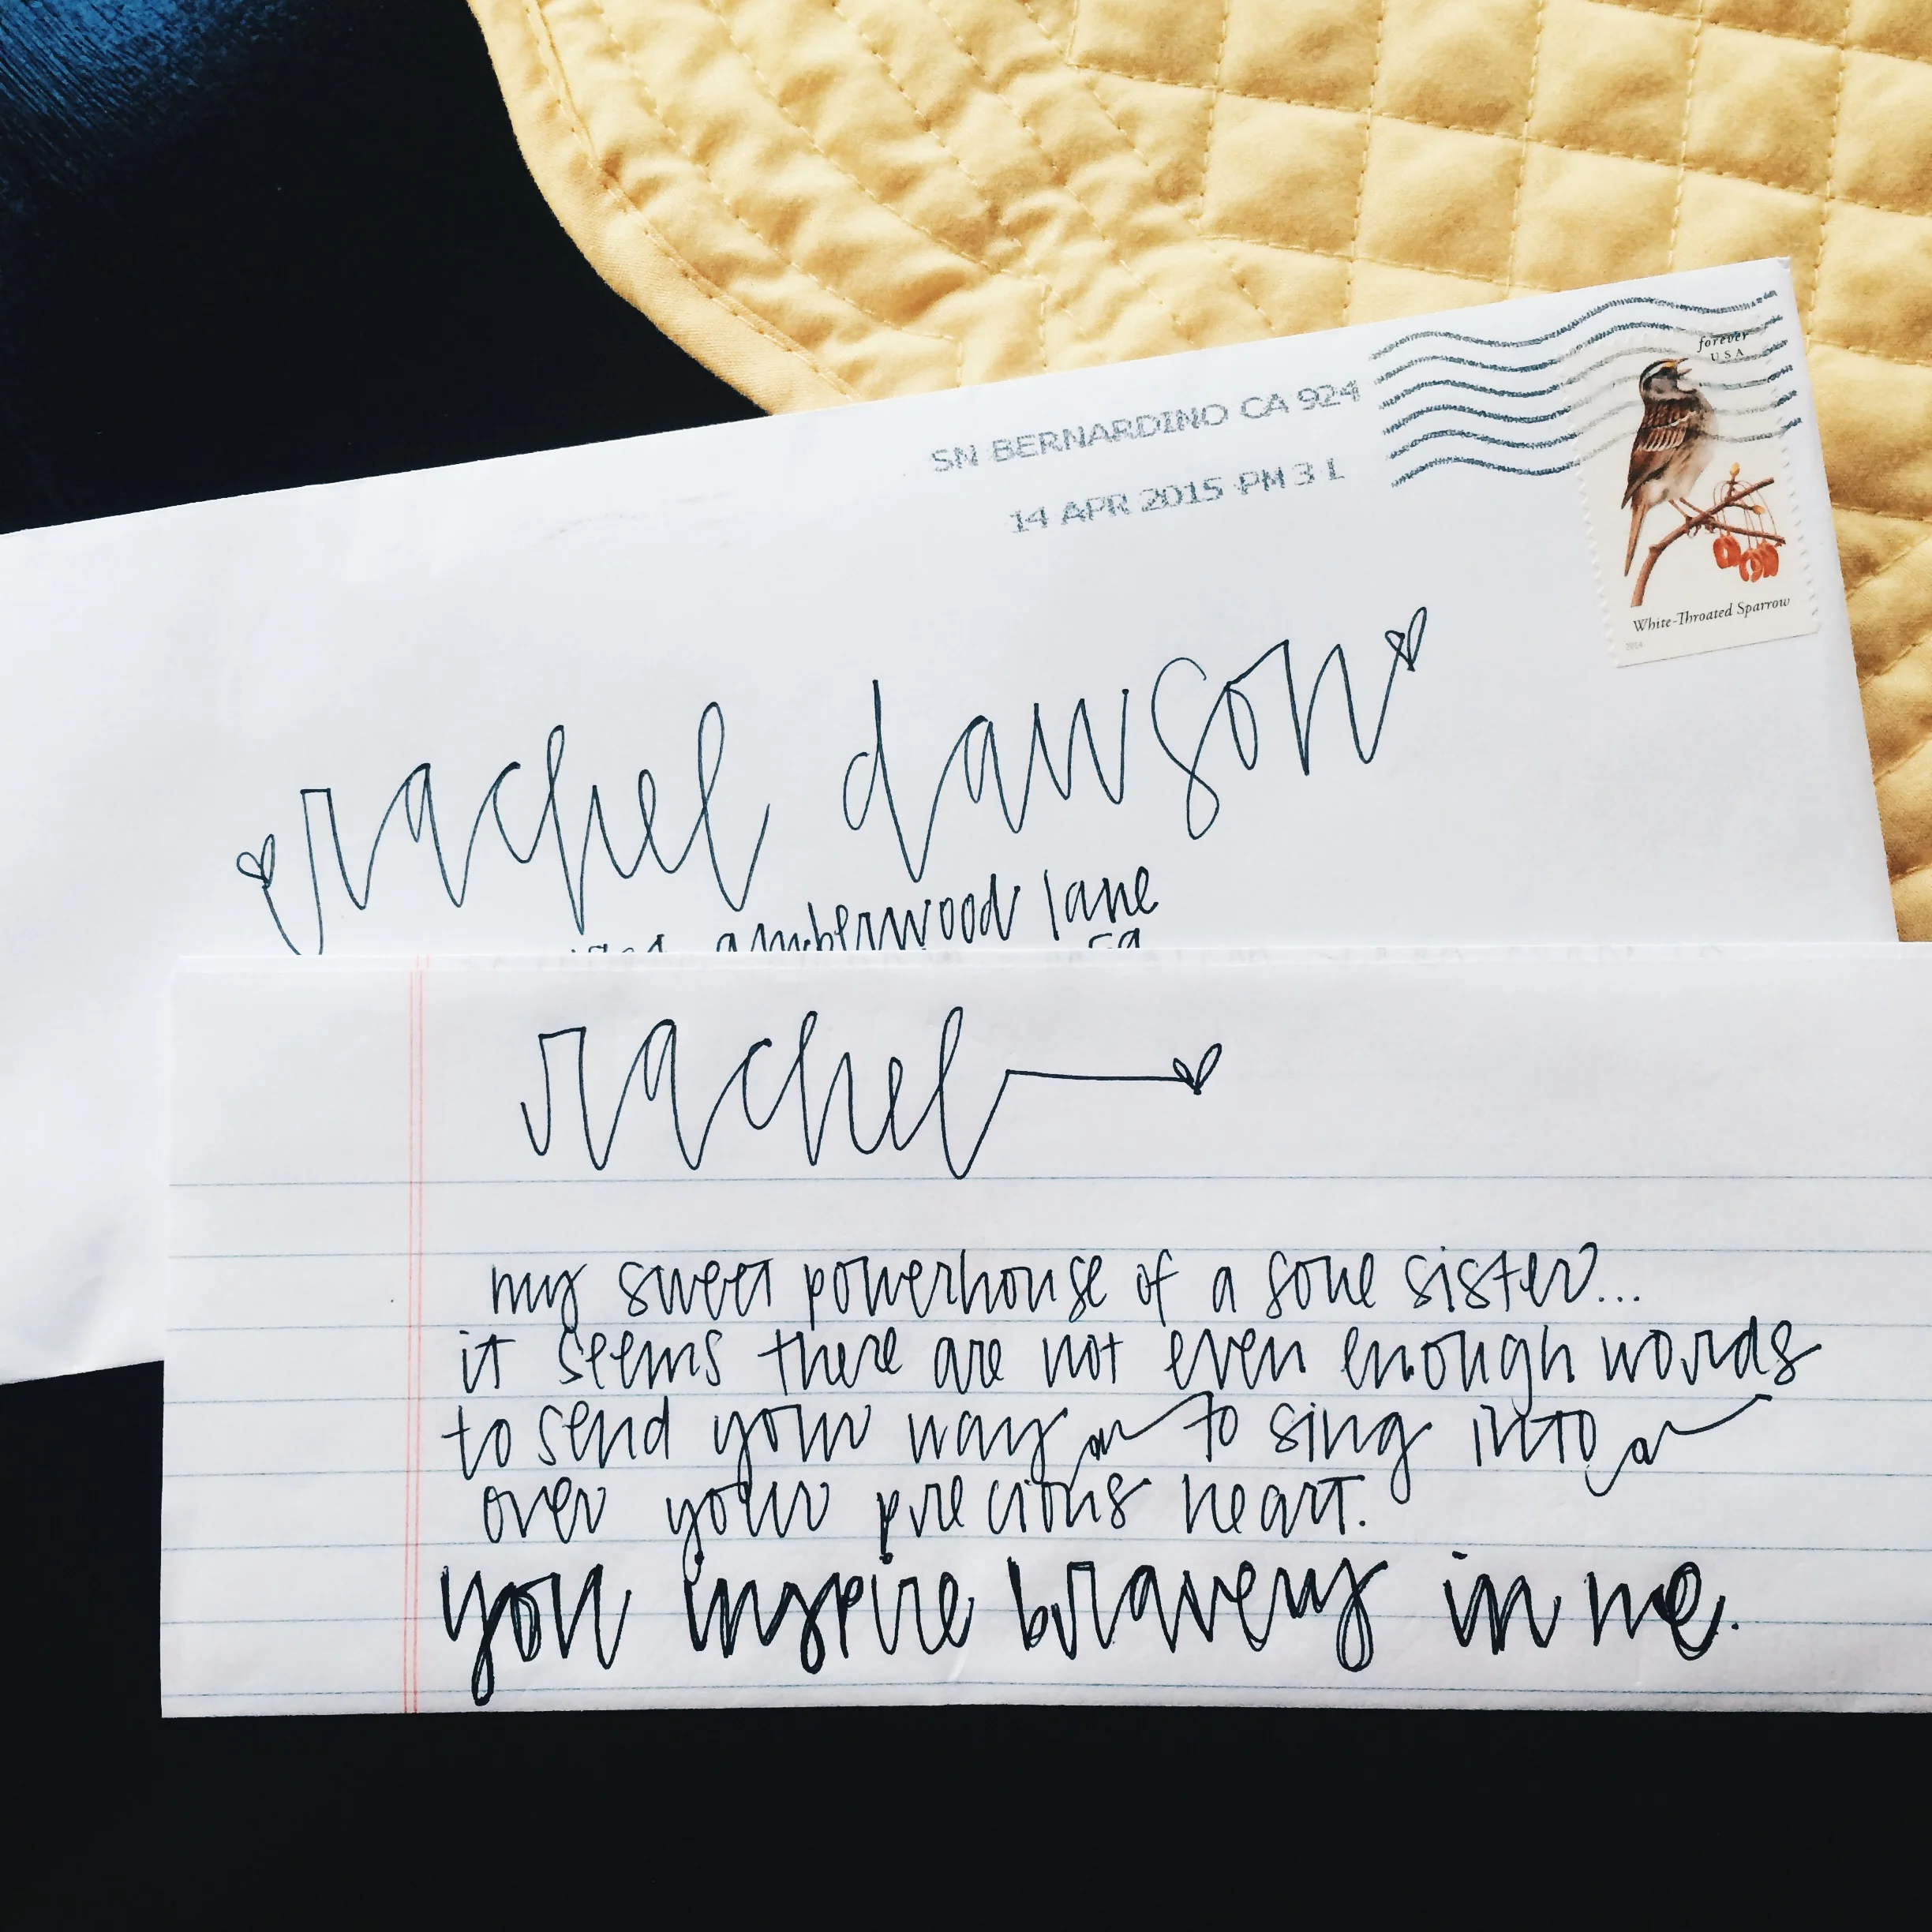 SN BERNARDINO CA 924
14 APR 2015 PM 3 L
forever
USA
White-Throated Sparrow
2014
rachel dawson
amberwood lane
rachel
my sweet powerhouse of a soul sister...
it seems there are not even enough words
to send your way or to sing into or
over your precious heart.
you inspire bravery in me.